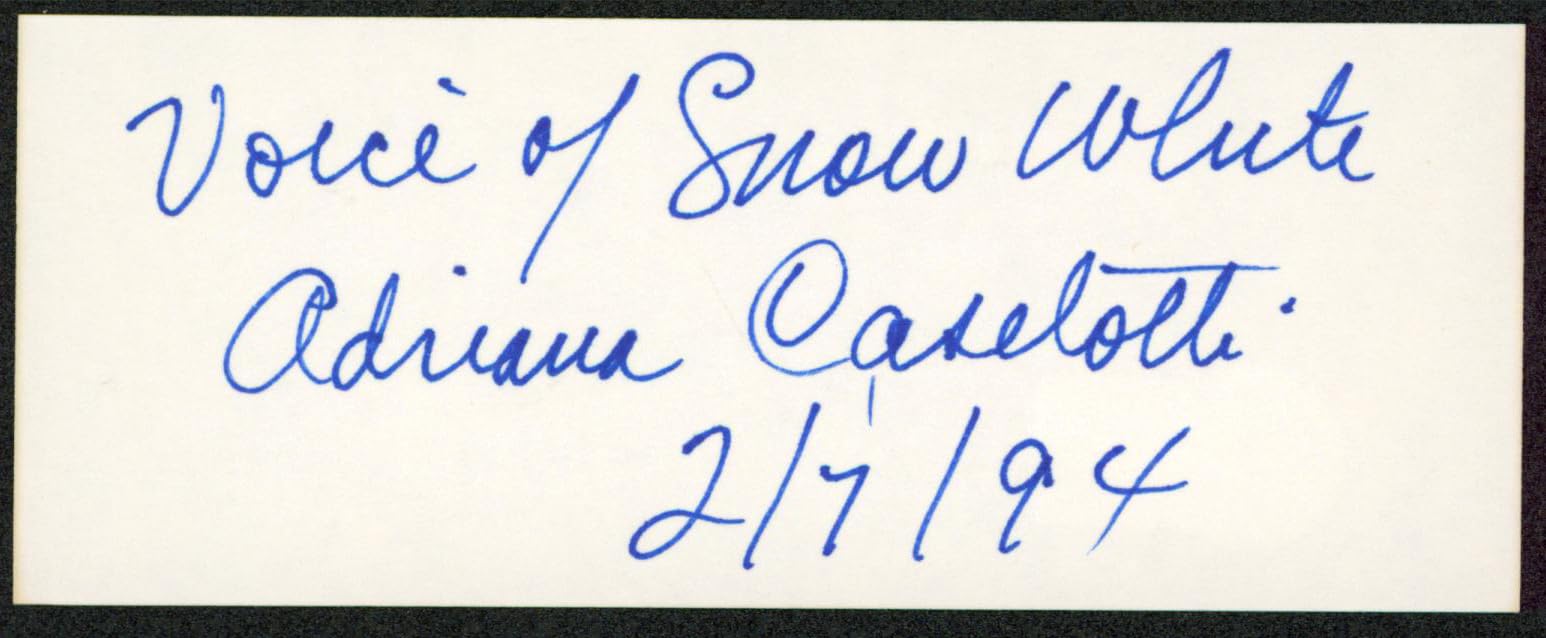 Voice of Snow White
Adriana Caselotti
2/7/94